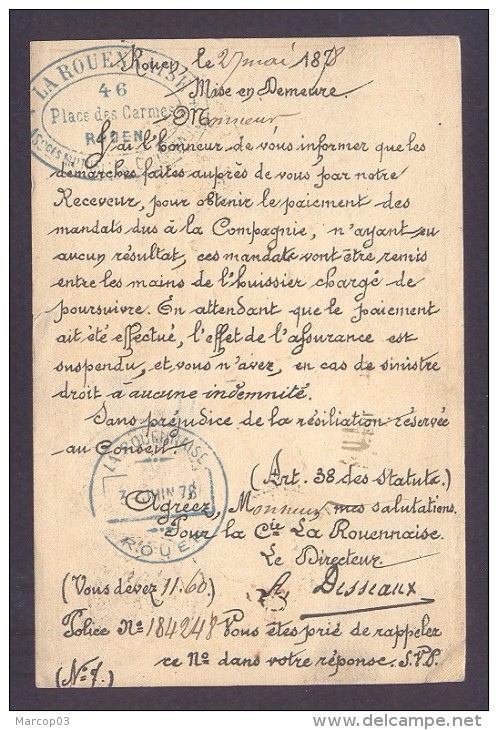 LA ROUENNAISE
46
Place des Carmes
ROUEN
Rouen, le 27 mai 1878
Mise en Demeure.
Monsieur
J'ai l'honneur de vous informer que les
démarches faites auprès de vous par notre
Receveur, pour obtenir le paiement des
mandats dus à la Compagnie, n'ayant eu
aucun résultat, ces mandats vont être remis
entre les mains de l'huissier chargé de
poursuivre. En attendant que le paiement
ait été effectué, l'effet de l'assurance est
suspendu, et vous n'avez, en cas de sinistre
droit à aucune indemnité.
Sans préjudice de la résiliation réservée
au Conseil.
(Art. 38 des statuts.)
LA ROUENNAISE
JUIN 78
ROUEN
Agréez, Monsieur mes salutations.
Pour la Cie La Rouennaise.
Le Directeur.
(Vous devez 11.60)
Disseaux
Police No 184248 Vous êtes prié de rappeler
ce No dans votre réponse. S.V.P.
(No 7.)
Marcop03